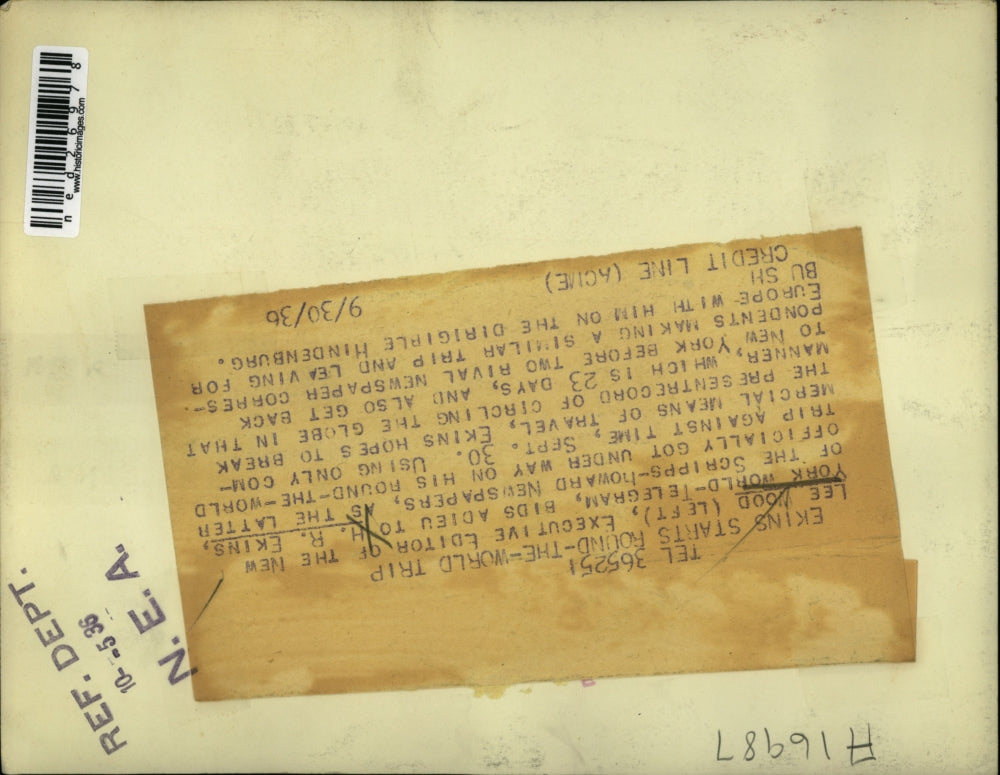 ned26978
www.historicimages.com
TEL 365251
EKINS STARTS ROUND-THE-WORLD TRIP
LEE WOOD (LEFT), EXECUTIVE EDITOR OF THE NEW
YORK WORLD-TELEGRAM, BIDS ADIEU TO H. R. EKINS,
OF THE SCRIPPS-HOWARD NEWSPAPERS, AS THE LATTER
OFFICIALLY GOT UNDER WAY ON HIS ROUND-THE-WORLD
TRIP AGAINST TIME, SEPT. 30. USING ONLY COM-
MERCIAL MEANS OF TRAVEL, EKINS HOPES TO BREAK
THE PRESENTRECORD OF CIRCLING THE GLOBE IN THAT
MANNER, WHICH IS 23 DAYS, AND ALSO GET BACK
TO NEW YORK BEFORE TWO RIVAL NEWSPAPER CORRES-
PONDENTS MAKING A SIMILAR TRIP AND LEAVING FOR
EUROPE WITH HIM ON THE DIRIGIBLE HINDENBURG.
BU SH
CREDIT LINE (ACME) 9/30/36
REF. DEPT.
10-5-36
N. E. A.
A16987